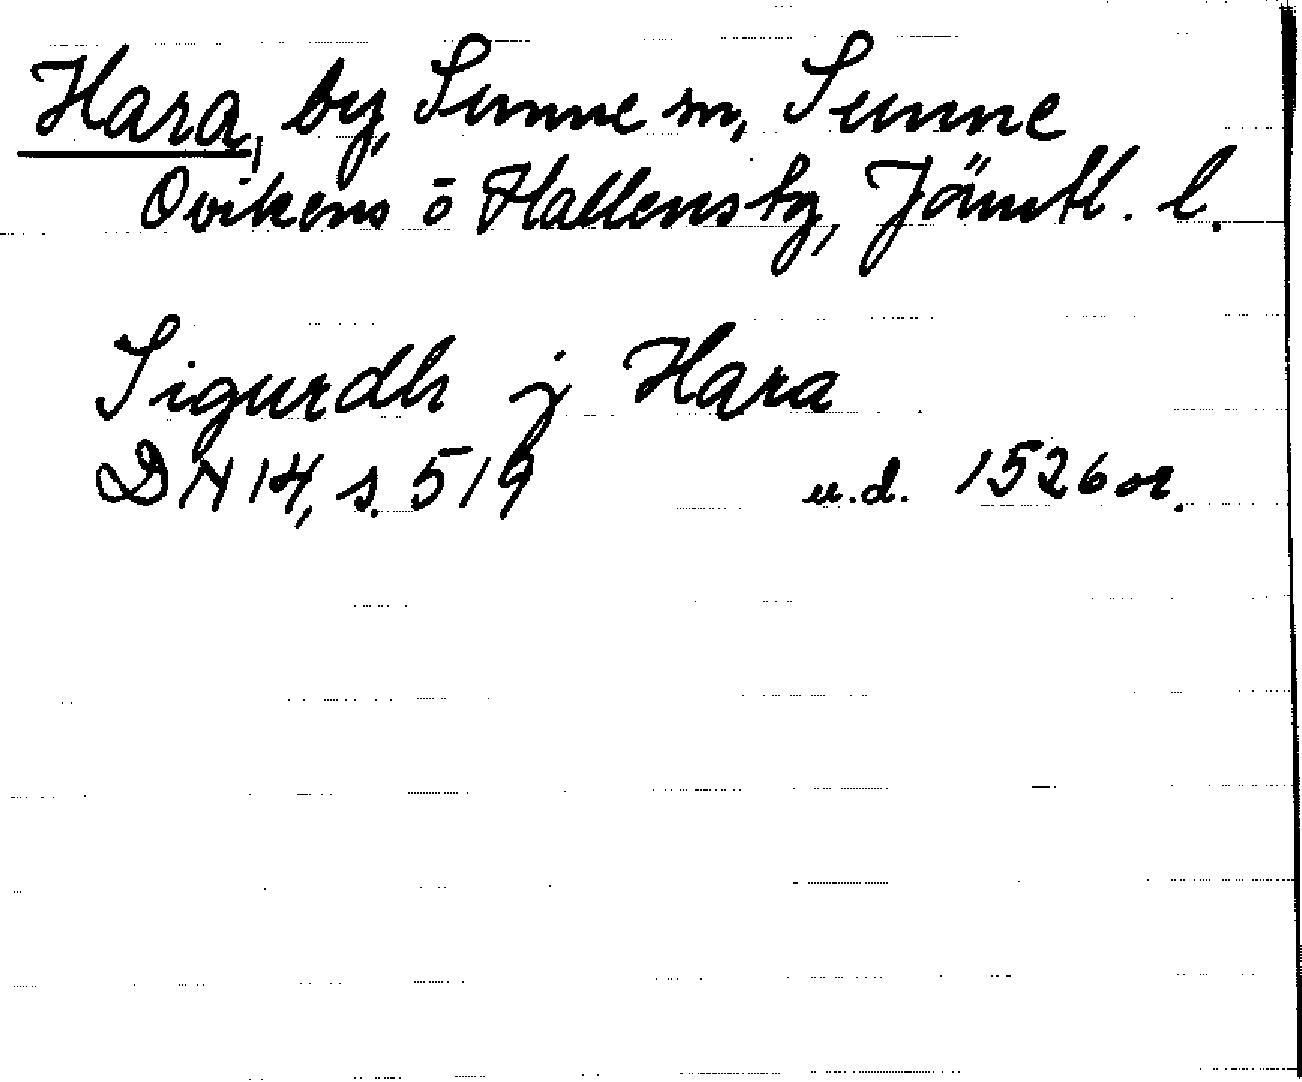 Hara, by, Sunne sn, Sunne
Ovikens o Hallens tg, Jämtl. l.
Sigurdh j Hara
DN 14, s. 519 u.d. 1526 or.